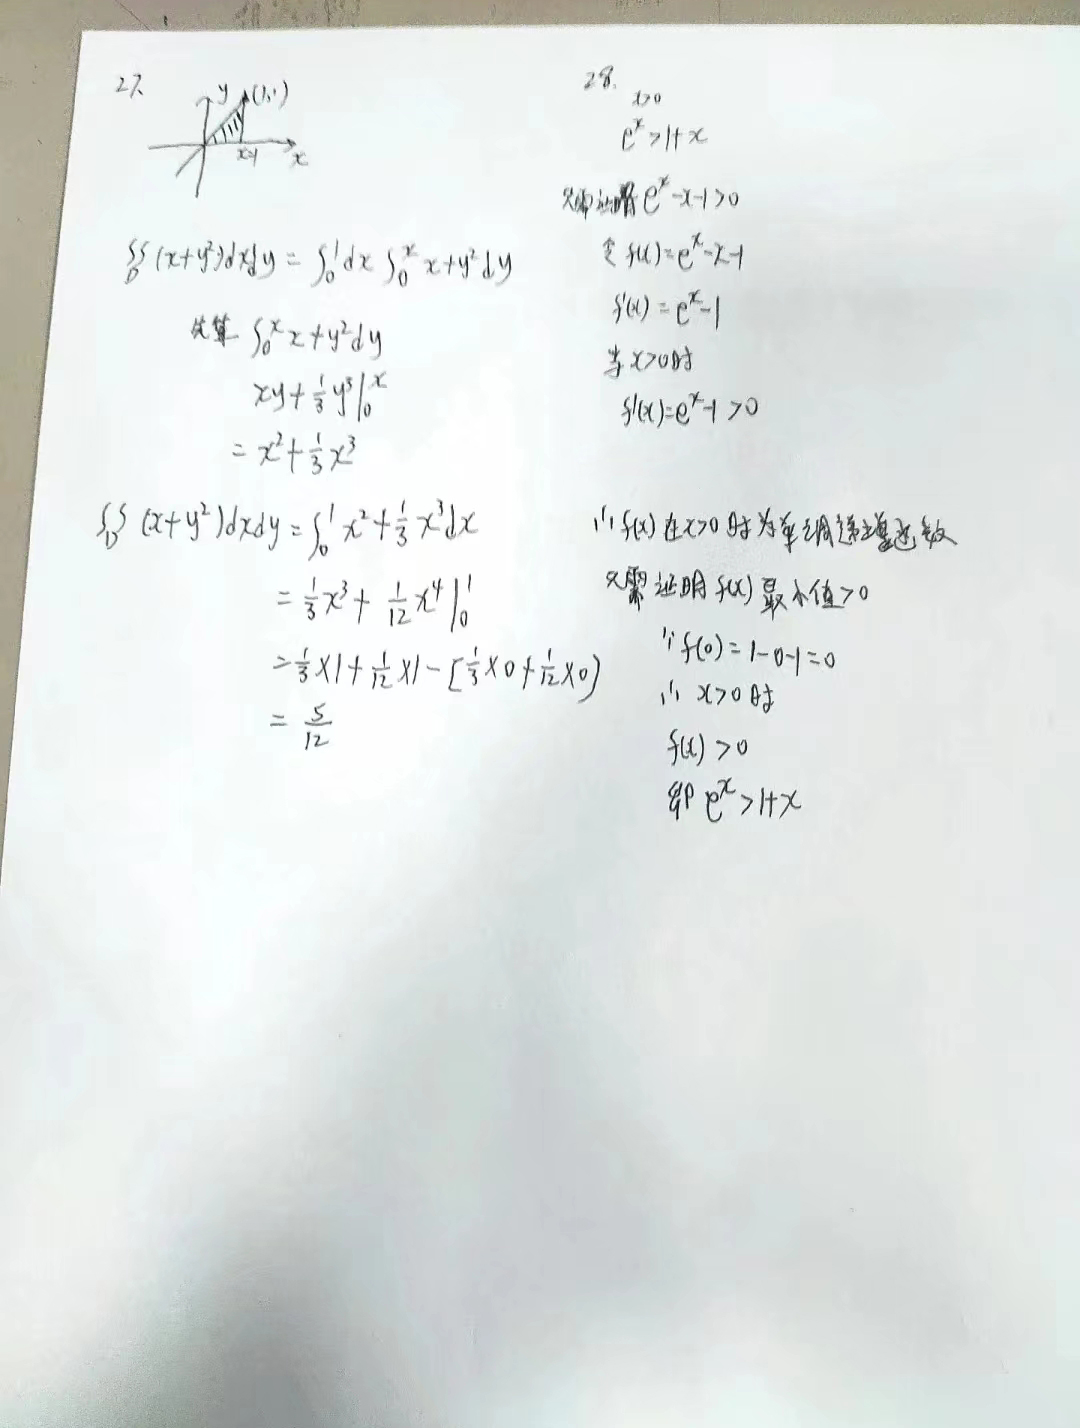 27.
y (1,1)
x=1 x
∬D (x+y²)dxdy = ∫₀¹dx ∫₀ˣ x+y²dy
先算 ∫₀ˣ x+y²dy
xy+⅓y³|₀ˣ
= x²+⅓x³
∬D (x+y²)dxdy = ∫₀¹ x²+⅓x³dx
= ⅓x³+ 1/12 x⁴|₀¹
= ⅓×1+1/12×1-[⅓×0+1/12×0)
= 5/12
28.
x>0
eˣ>1+x
只需证明 eˣ-x-1>0
令 f(x)=eˣ-x-1
f'(x)=eˣ-1
当x>0时
f'(x)=eˣ-1>0
∴f(x)在x>0时为单调递增函数
只需证明f(x)最小值>0
∵f(0)=1-0-1=0
∴x>0时
f(x)>0
即 eˣ>1+x